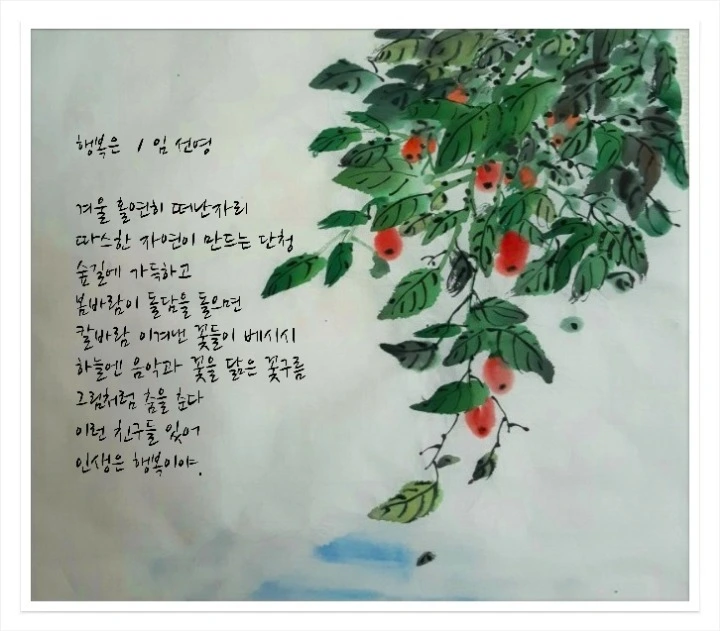 행복은 / 임 선영
겨울 홀연히 떠난자리
따스한 자연이 만드는 단청
숲길에 가득하고
봄바람이 돌담을 돌으면
칼바람 이겨낸 꽃들이 베시시
하늘엔 음악과 꽃을 닮은 꽃구름
그림처럼 춤을 춘다
이런 친구들 있어
인생은 행복이야.